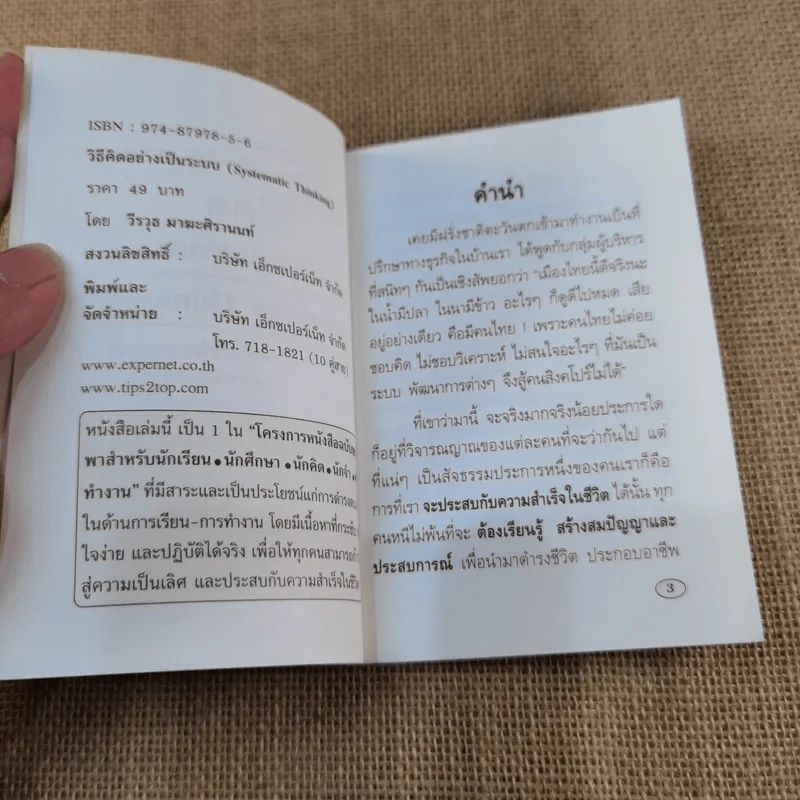 ISBN : 974-87978-5-6
วิธีคิดอย่างเป็นระบบ (Systematic Thinking)
ราคา 49 บาท
โดย วีรวุธ มาฆะศิรานนท์
สงวนลิขสิทธิ์ : บริษัท เอ็กซเปอร์เน็ท จำกัด
พิมพ์และ
จัดจำหน่าย : บริษัท เอ็กซเปอร์เน็ท จำกัด
โทร. 718-1821 (10 คู่สาย)
www.expernet.co.th
www.tips2top.com
หนังสือเล่มนี้ เป็น 1 ใน "โครงการหนังสือฉบับพก
พาสำหรับนักเรียน • นักศึกษา • นักคิด • นักจำ
ทำงาน" ที่มีสาระและเป็นประโยชน์แก่การดำรงตน
ในด้านการเรียน-การทำงาน โดยมีเนื้อหาที่กระชับ
ใจง่าย และปฏิบัติได้จริง เพื่อให้ทุกคนสามารถก้าว
สู่ความเป็นเลิศ และประสบกับความสำเร็จในชีวิต
คำนำ
เคยมีฝรั่งชาติตะวันตกเข้ามาทำงานเป็นที่
ปรึกษาทางธุรกิจในบ้านเรา ได้พูดกับกลุ่มผู้บริหาร
ที่สนิทๆ กันเป็นเชิงสัพยอกว่า "เมืองไทยนี้ดีจริงนะ
ในน้ำมีปลา ในนามีข้าว อะไรๆ ก็ดูดีไปหมด เสีย
อยู่อย่างเดียว คือมีคนไทย ! เพราะคนไทยไม่ค่อย
ชอบคิด ไม่ชอบวิเคราะห์ ไม่สนใจอะไรๆ ที่มันเป็น
ระบบ พัฒนาการต่างๆ จึงสู้คนสิงคโปร์ไม่ได้"
ที่เขาว่ามานี้ จะจริงมากจริงน้อยประการใด
ก็อยู่ที่วิจารณญาณของแต่ละคนที่จะว่ากันไป แต่
ที่แน่ๆ เป็นสัจธรรมประการหนึ่งของคนเราก็คือ
การที่เรา จะประสบกับความสำเร็จในชีวิต ได้นั้น ทุก
คนหนีไม่พ้นที่จะ ต้องเรียนรู้ สร้างสมปัญญาและ
ประสบการณ์ เพื่อนำมาดำรงชีวิต ประกอบอาชีพ
3